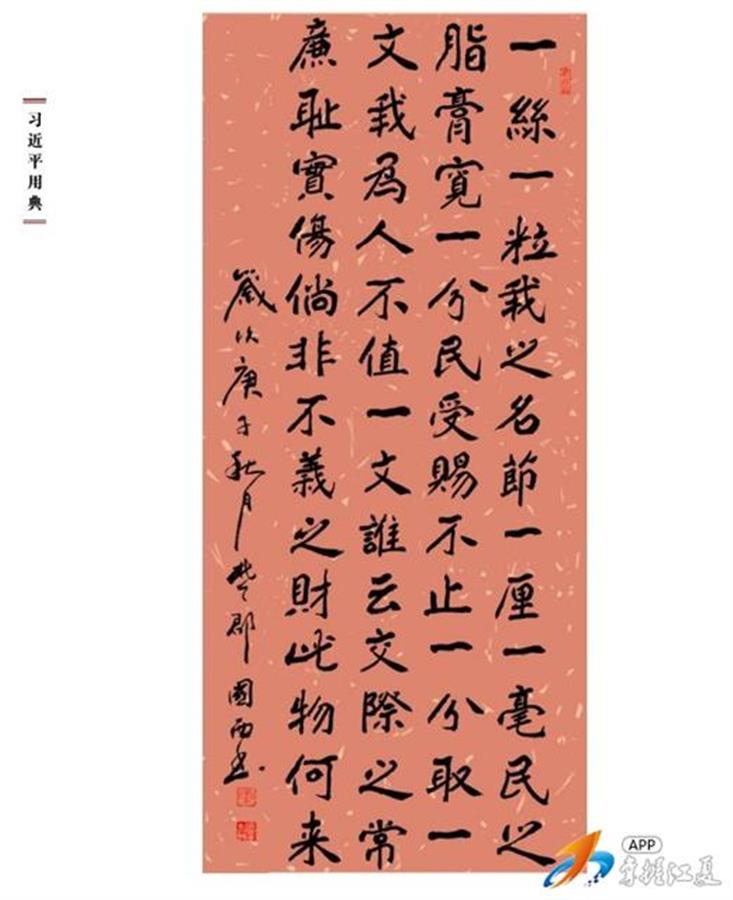 习近平用典
一絲一粒我之名節一厘一毫民之
脂膏寬一分民受賜不止一分取一
文我為人不值一文誰云交際之常
廉耻實傷倘非不義之財此物何来
歲次庚子秋月楚郡國雨书
APP
掌握江夏